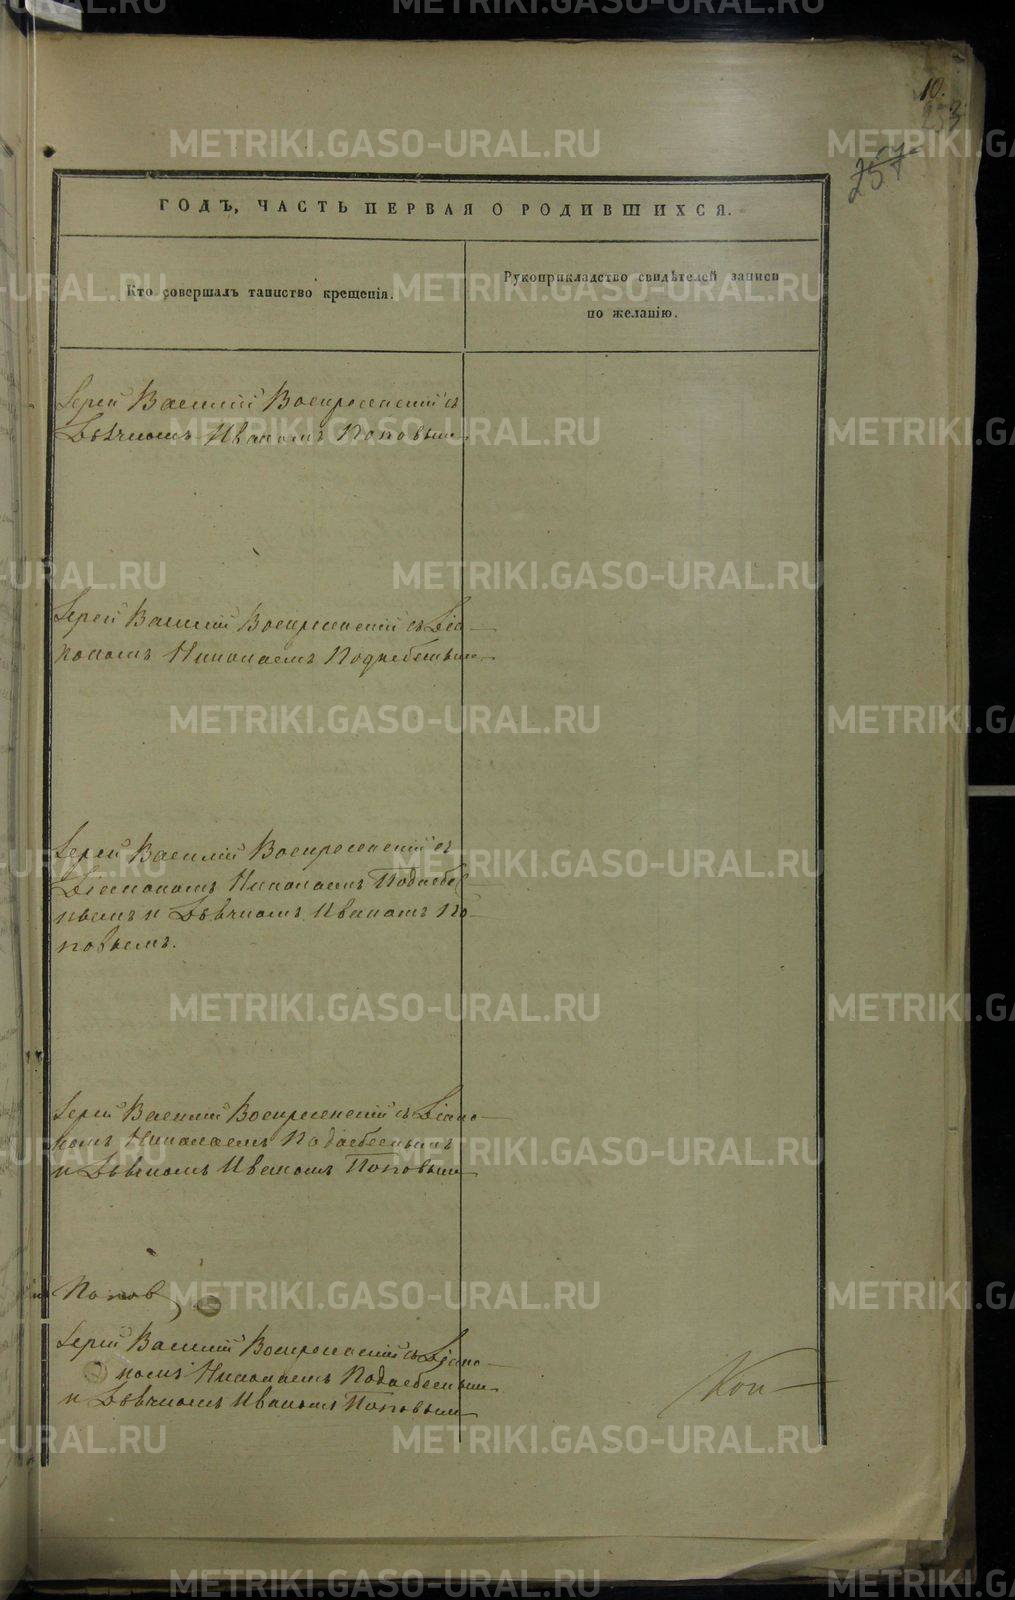 10.
253
257
ГОДЪ, ЧАСТЬ ПЕРВАЯ О РОДИВШИХСЯ.
Кто совершалъ таинство крещенія.
Рукоприкладство свидѣтелей записи
по желанію.
Іерей Василій Воскресенскій съ
Дьячкомъ Иваномъ Поповым
Іерей Василій Воскресенскій съ Діа-
кономъ Николаемъ Поднебесным
Іерей Василій Воскресенскій съ
Діакономъ Николаемъ Поднебес
нымъ и Дьячкомъ Иваномъ По-
повымъ.
Іерей Василій Воскресенскій съ Діако-
номъ Николаемъ Поднебеснымъ
и Дьячкомъ Иваномъ Поповым
Попов
Іерей Василій Воскресенскій съ Діако-
номъ Николаемъ Поднебесным
и Дьячкомъ Иваномъ Поповым
METRIKI.GASO-URAL.RU